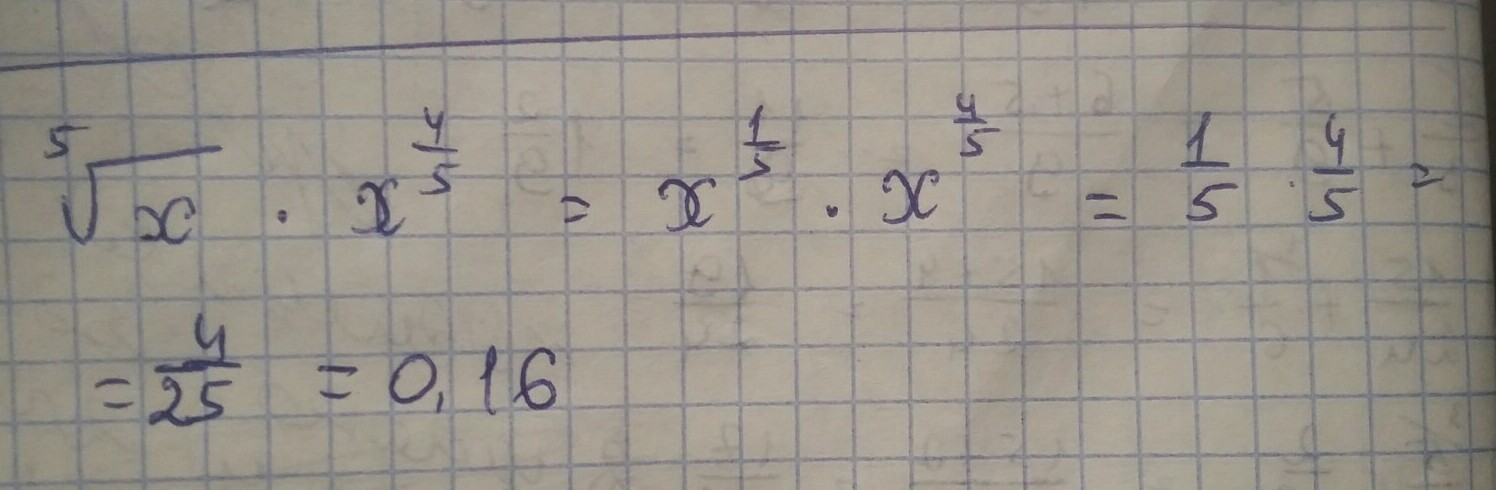 ⁵√x · x^(4/5) = x^(1/5) · x^(4/5) = 1/5 · 4/5 =
= 4/25 = 0,16